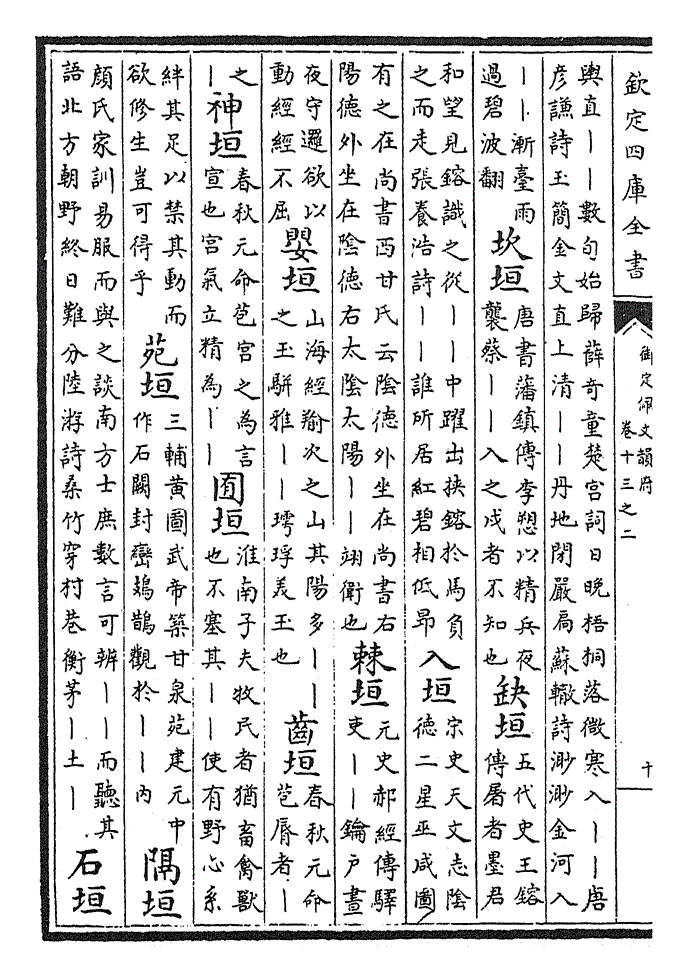 欽定四庫全書
御定佩文韻府
卷十三之二
十
輿直丨丨數旬始歸薛奇童楚宮詞日晚梧桐落微寒入丨丨唐
彥謙詩玉簡金文直上清丨丨丹地閉嚴扃蘇轍詩渺渺金河入
丨丨漸臺雨
過碧波翻
坎垣
唐書藩鎮傳李愬以精兵夜
襲蔡丨丨入之戍者不知也
缺垣
五代史王鎔
傳屠者墨君
和望見鎔識之從丨丨中躍出挾鎔於馬負
之而走張養浩詩丨丨誰所居紅碧相低昂
入垣
宋史天文志陰
德二星巫咸圖
有之在尚書西甘氏云陰德外坐在尚書右
陽德外坐在陰德右太陰太陽丨丨翊衛也
棘垣
元史郝經傳驛
吏丨丨鑰戶晝
夜守邏欲以
動經經不屈
嬰垣
山海經羭次之山其陽多丨丨
之玉駢雅丨丨璕琈美玉也
齒垣
春秋元命
苞脣者丨
之
丨
神垣
春秋元命苞宮之為言
宣也宮氣立精為丨丨
囿垣
淮南子夫牧民者猶畜禽獸
也不塞其丨丨使有野心系
絆其足以禁其動而
欲修生豈可得乎
苑垣
三輔黃圖武帝築甘泉苑建元中
作石闕封巒鳷鵲觀於丨丨內
隔垣
顏氏家訓易服而與之談南方士庶數言可辨丨丨而聽其
語北方朝野終日難分陸游詩桑竹穿村巷衡茅丨土丨
石垣